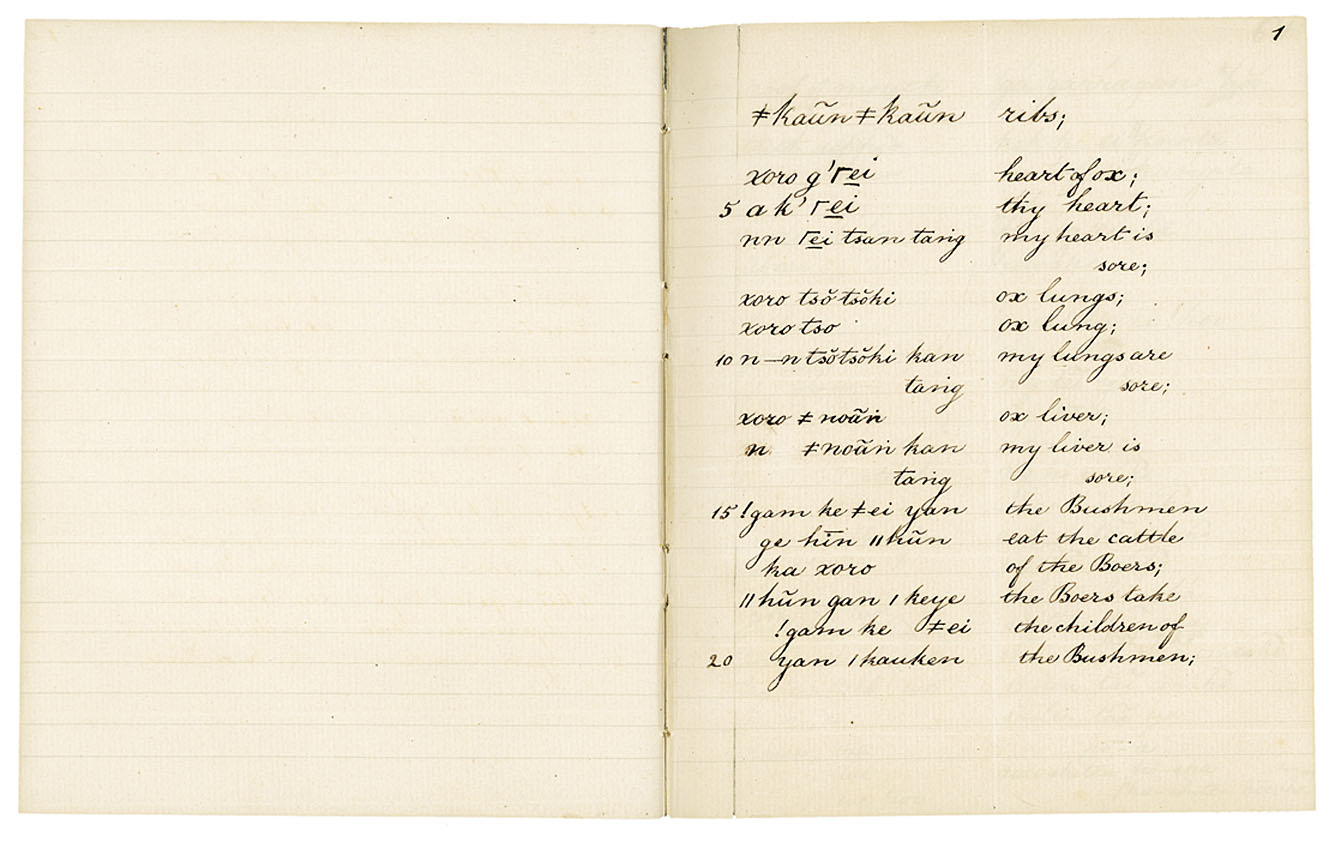 1
ǂkaũn ǂkaũn ribs;
xoro g'ꞅe̲i̲ heart of ox;
5 a k' ꞅe̲i̲ thy heart;
nn ꞅe̲i̲ tsan tang my heart is
sore;
xoro tsŏ tsŏki ox lungs;
xoro tso ox lung;
10 n—n tsŏtsŏki kan my lungs are
tang sore;
xoro ǂ noãṅ ox liver;
n ǂnoãṅ kan my liver is
tang sore;
15 !gam ke ǂei yan the Bushmen
ge hīn ǁhũn eat the cattle
ka xoro of the Boers;
ǁhũn gan ǀ keye the Boers take
!gam ke ǂei the children of
20 yan ǀkauken the Bushmen;